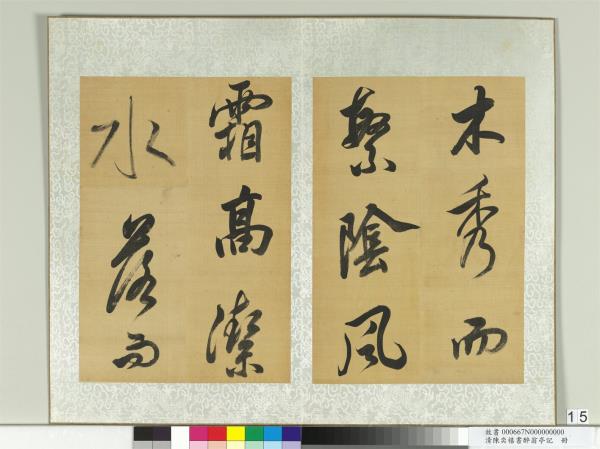 木秀而
繁陰風
霜高潔
水落而
15
故書 000667N000000000
清陳奕禧書醉翁亭記 冊